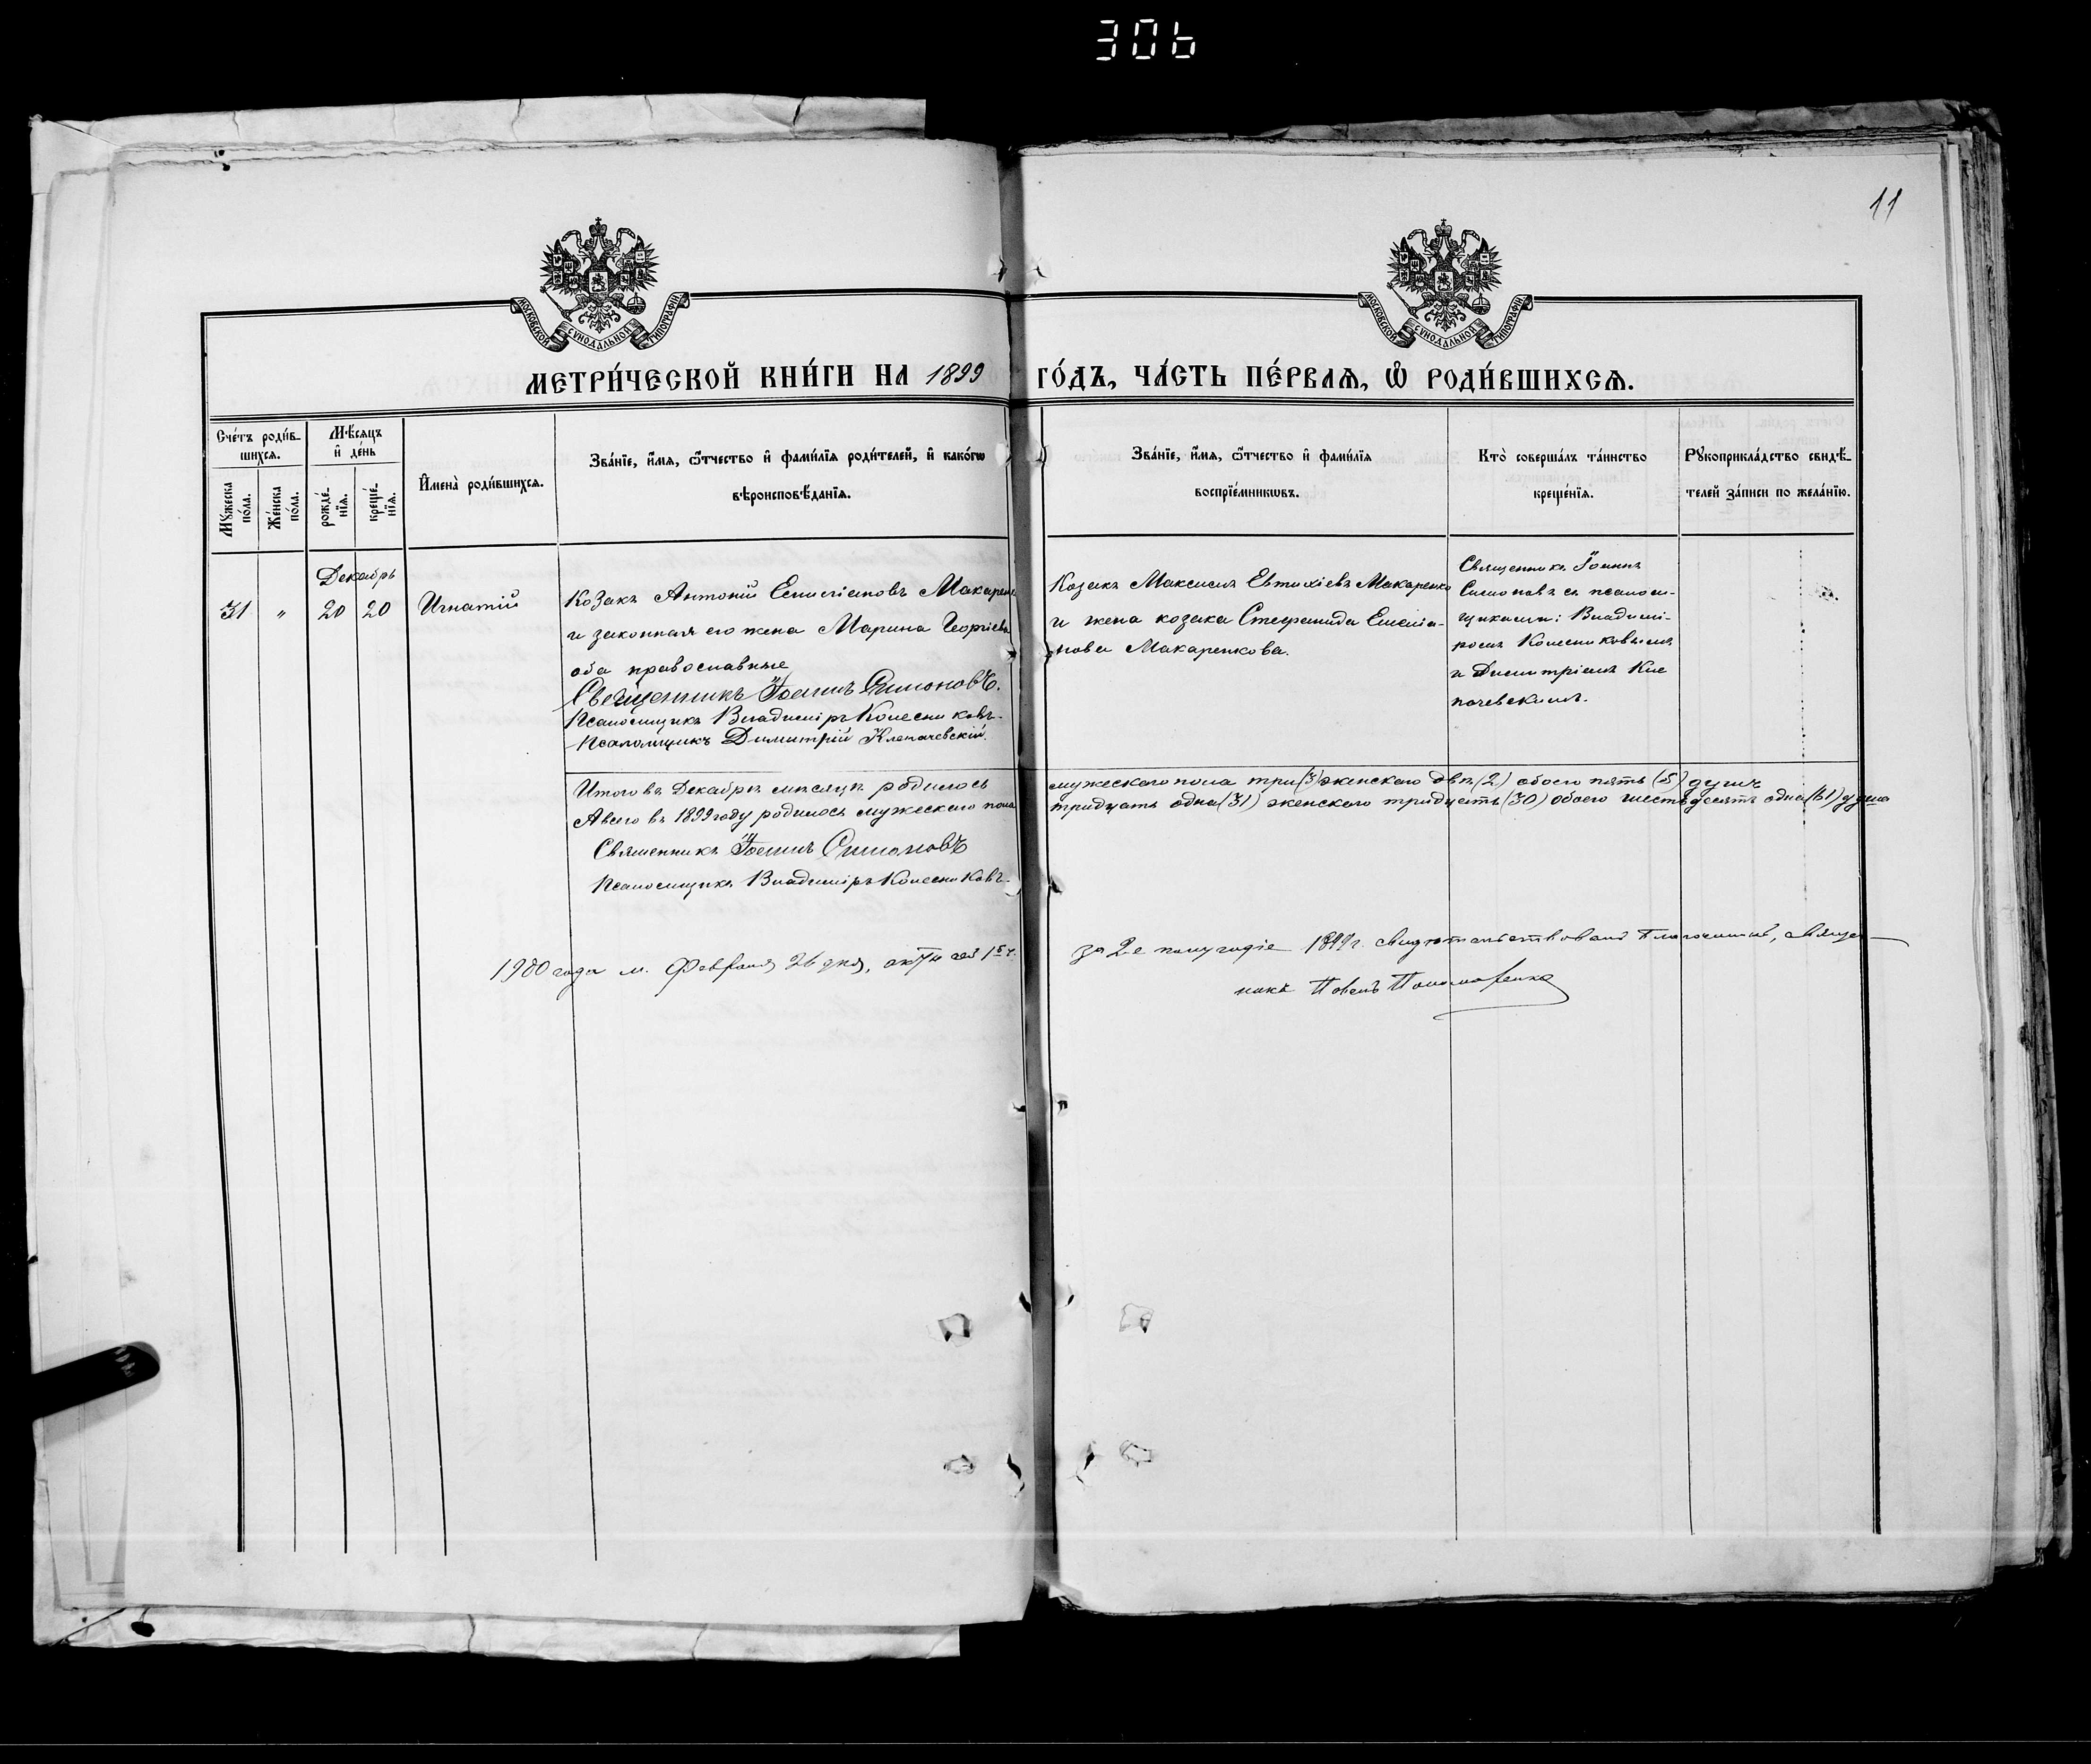 306
11
МОСКОВСКОЙ СѴНОДАЛЬНОЙ ТИПОГРАФІИ
МОСКОВСКОЙ СѴНОДАЛЬНОЙ ТИПОГРАФІИ
МЕТРИ́ЧЕСКОЙ КНИ́ГИ НА 1899 ГО́ДЪ, ЧА́СТЬ ПЕ́РВАѦ, Ѽ РОДИ́ВШИХСѦ.
Сче́тъ роди́в-
шихсѧ.
Мꙋжеска по́ла.
Же́нска по́ла.
Мѣ́сѧцъ
и҆ де́нь
рожде́-
нїѧ.
креще́-
нїѧ.
И҆мена̀ роди́вшихсѧ.
Зва́нїе, и҆́мѧ, ѻ҆́тчество и҆ фами́лїѧ роди́телей, и҆ како́гѡ
вѣроисповѣ́данїѧ.
Зва́нїе, и҆́мѧ, ѻ҆́тчество и҆ фами́лїѧ
воспрїе́мникѡвъ.
Кто̀ соверша́лъ та́инство
креще́нїѧ.
Рꙋкоприкла́дство свидѣ́-
телей за́писи по жела́нїю.
Декабрь
31 " 20 20 Игнатій
Козакъ Антоній Емиліановъ Макаренко
и законная его жена Марина Георгіева
оба православные
Священникъ Іоаннъ Симоновъ.
Псаломщикъ Владиміръ Колесниковъ.
Псаломщикъ Димитрій Клепачевскій.
Козакъ Максимъ Евтихіевъ Макаренко
и жена козака Стефанида Емилiа-
нова Макаренкова.
Священникъ Іоаннъ
Симоновъ съ псалом-
щиками: Владимі-
ромъ Колесниковымъ
и Димитріемъ Кле
пачевскимъ.
Итого въ Декабрѣ мѣсяцѣ родилось мужескаго пола три (3) женскаго двѣ (2) обоего пять (5) душъ
А всего въ 1899 году родилось мужескаго пола тридцать одна (31) женскаго тридцать (30) обоего шестьдесятъ одна (61) душа
Священникъ Іоаннъ Симоновъ
Псаломщикъ Владиміръ Колесниковъ.
1900 года м. Февраля 26 дня, акты сей 1й ч. за 2е полугодіе 1899 г. свидѣтельствовалъ Благочинный, священ-
никъ Павелъ Пономаренко